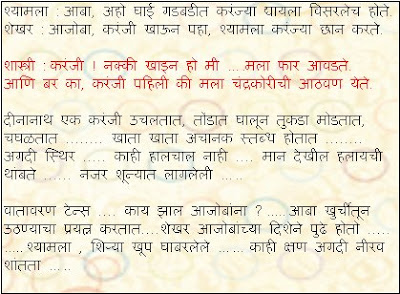 श्यामला : आबा, अहो घाई गडबडीत करंज्या द्यायला विसरलेच होते.
शेखर : आजोबा, करंजी खाऊन पहा, श्यामला करंज्या छान करते.
शास्त्री : करंजी ! नक्की खाइन हो मी ....मला फार आवडते.
आणि बर का, करंजी पाहिली की मला चंद्रकोरीची आठवण येते.
दीनानाथ एक करंजी उचलतात, तोंडात घालून तुकडा मोडतात,
चघळतात ........ खाता खाता अचानक स्तब्ध होतात ........
अगदी स्थिर ..... काही हालचाल नाही .... मान देखील हलायची
थांबते ...... नजर शून्यात लागलेली .....
वातावरण टेन्स .... काय झाल आजोबांना ? .....आबा खुर्चीतून
उठण्याचा प्रयत्न करतात....शेखर आजोबांच्या दिशेने पुढे होतो .....
.....श्यामला , शिऱ्या खूप घाबरलेले ...... काही क्षण अगदी नीरव
शांतता .....